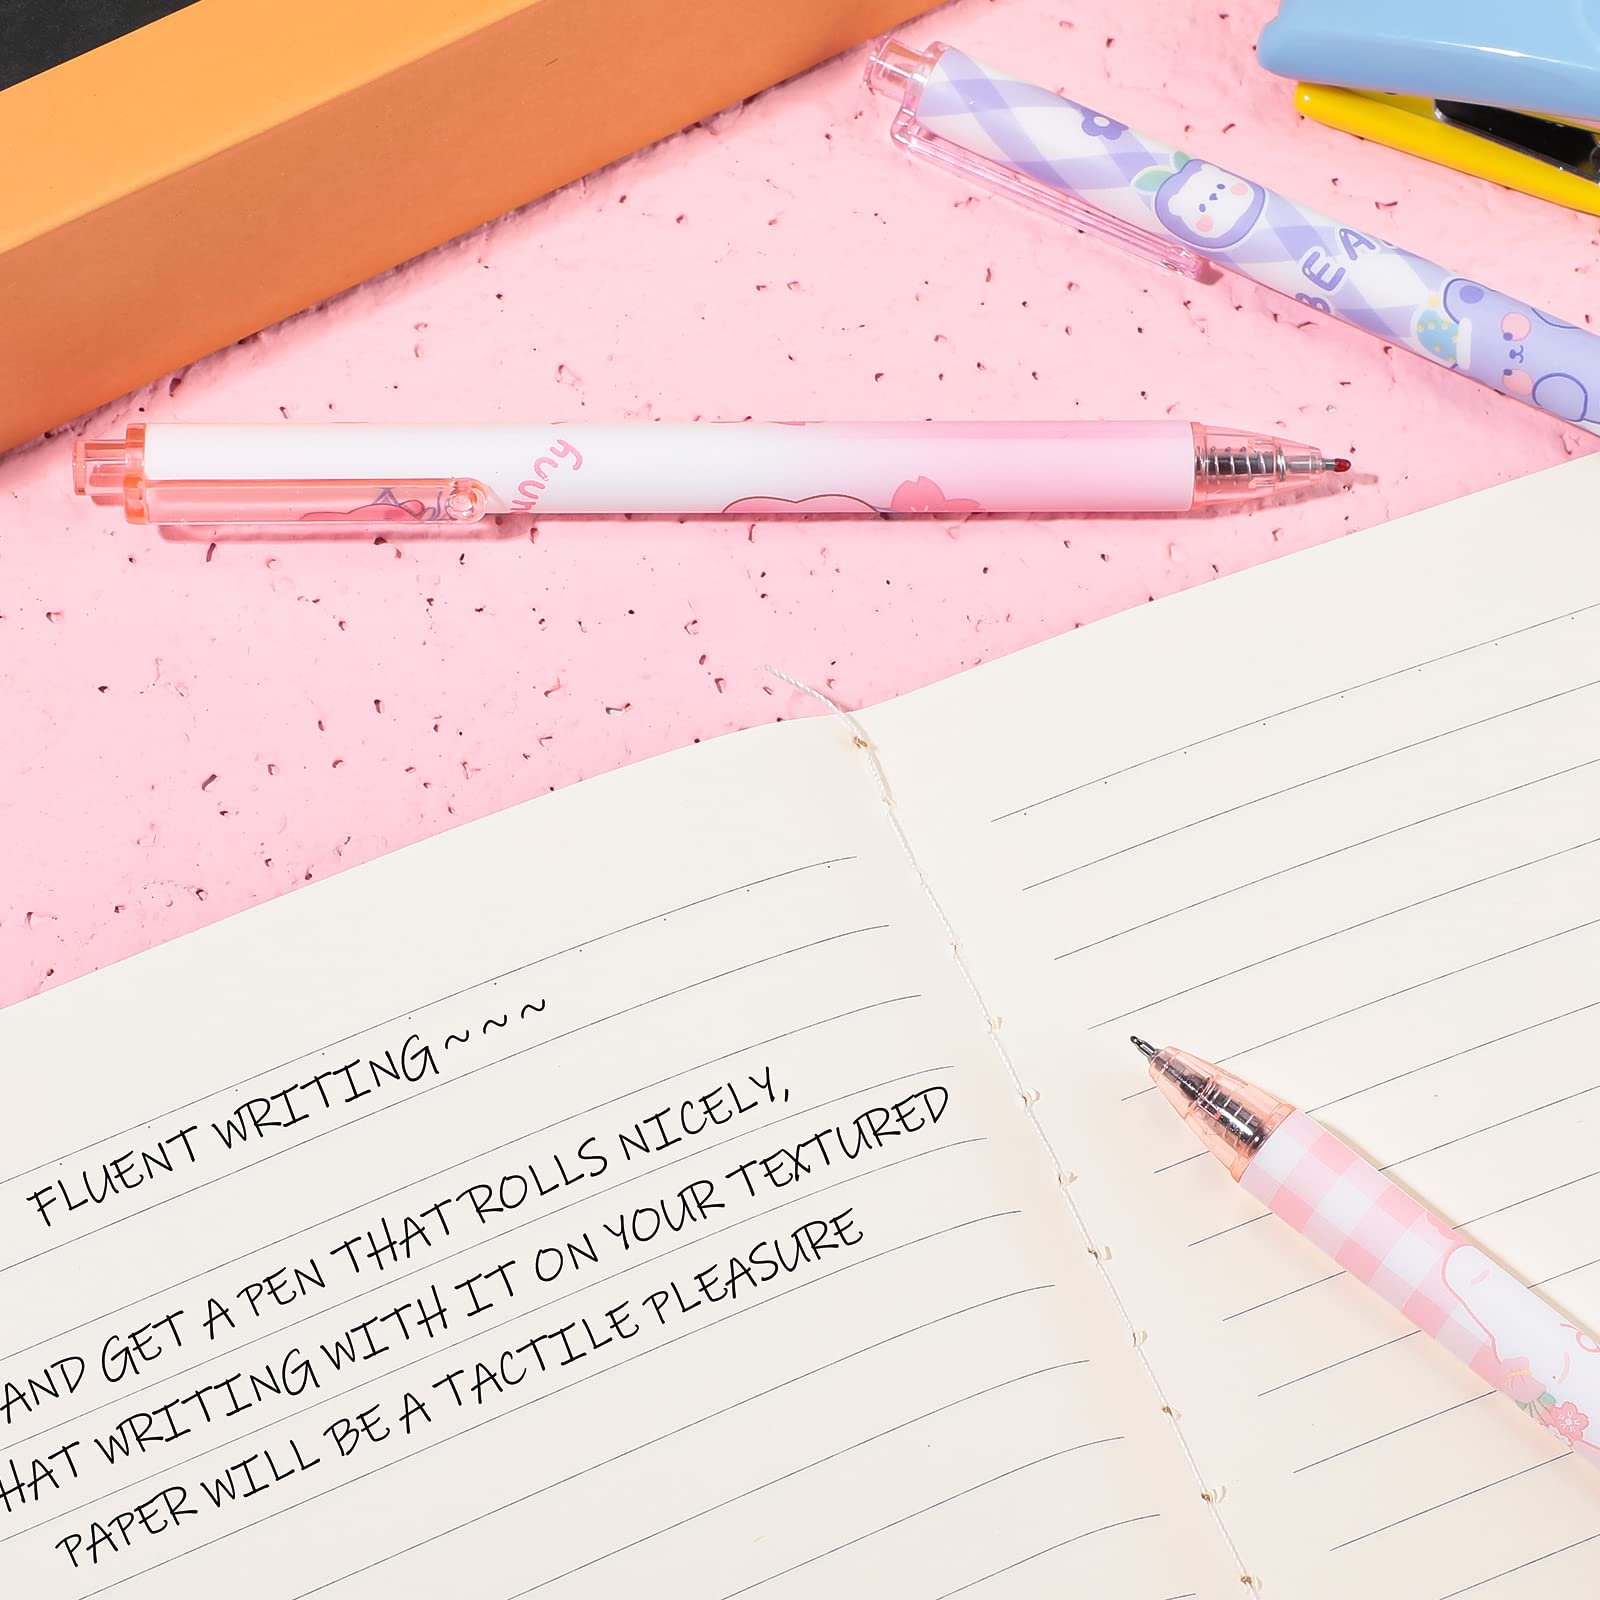 BEA
unny
FLUENT WRITING~~~
AND GET A PEN THAT ROLLS NICELY,
HAT WRITING WITH IT ON YOUR TEXTURED
PAPER WILL BE A TACTILE PLEASURE